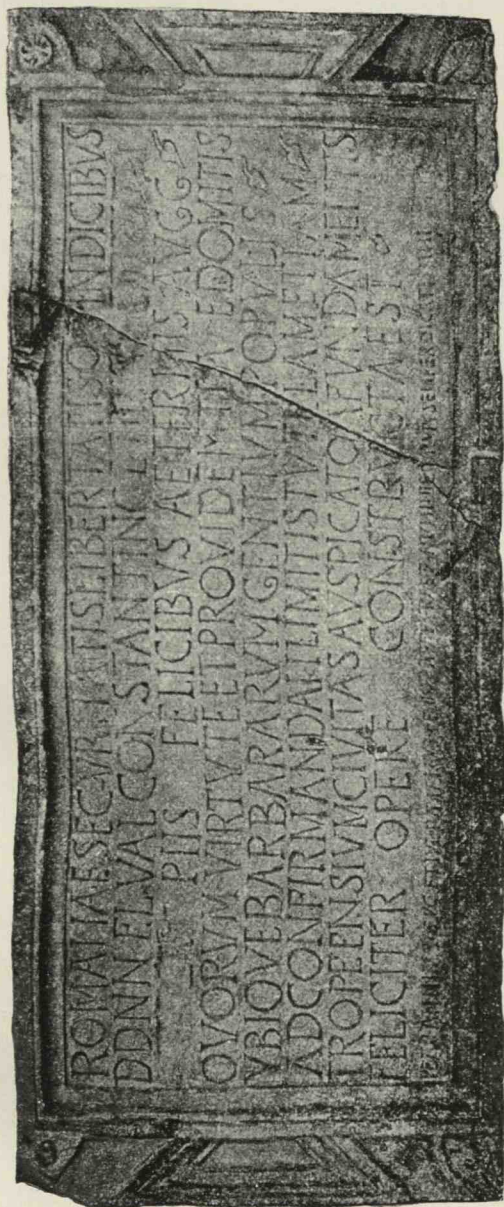 ROMANAE SECVRITATIS LIBERTATISQ VINDICIBVS
DD NN FL VAL CONSTANTINO
PIIS FELICIBVS AETERNIS AVGG
QVORVM VIRTVTE ET PROVIDENTIA EDOMITIS
VBIQVE BARBARARVM GENTIVM POPVLIS
AD CONFIRMANDAM LIMITIS TVTELAM ETIAM
TROPEENSIVM CIVITAS AVSPICATO A FVNDAMENTIS
FELICITER OPERE CONSTRVCTA EST